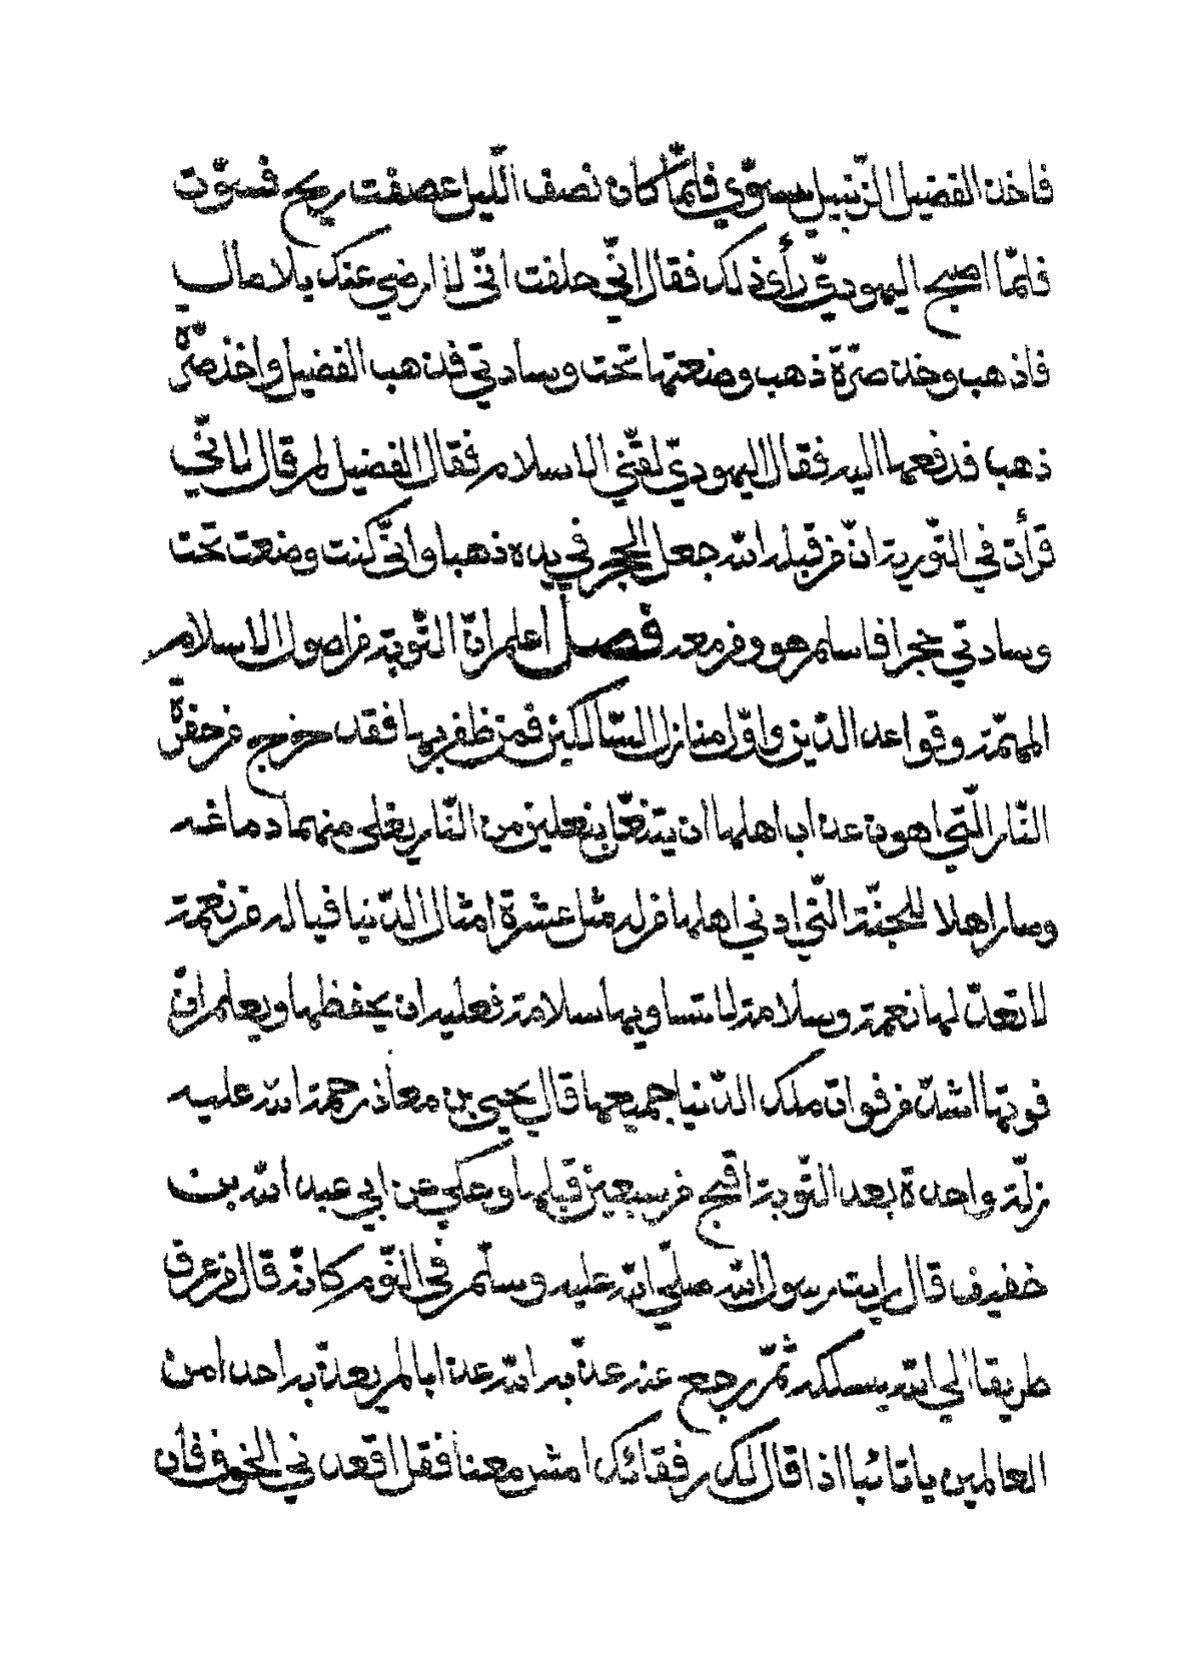 فاخذ الفضيل الزنبيل يسوّي فلمّا كان نصف اللّيل عصفت ريح فسوّت
فلمّا اصبح اليهوديّ رأى ذلك فقال انّي حلفت انّي لا ارضي عنك بلا مال
فاذهب وخذ صرّة ذهب وضعتها تحت وسادتي فذهب الفضيل واخذ صرّة
ذهب فدفعها اليه فقال اليهوديّ لقّني الاسلام فقال الفضيل لم قال لانّي
قرأت في التّورية انّ من قبله الله جعل الحجر في يده ذهبا وانّي كنت وضعت تحت
وسادتي حجرا فاسلم هو ومن معه فصل اعلم انّ التّوبة من اصول الاسلام
المهمّة وقواعد الدّين واوّل منازل السّالكين فمن ظفر بها فقد خرج من حفرة
النّار الّتي اهون عذاب اهلها ان يتنعّل بنعلين من النّار يغلى منهما دماغه
وصار اهلا للجنّة الّتي ادني اهلها من له مثل عشرة امثال الدّنيا فيا له من نعمة
لا تعدّ لها نعمة وسلامة لا تساويها سلامة فعليه ان يحفظها ويعلم انّ
فوتها اشدّ من فوات ملك الدّنيا جميعها قال يحيى بن معاذ رحمة الله عليه
زلّة واحدة بعد التّوبة اقبح من سبعين قبلها وحكي عن ابي عبد الله بن
خفيف قال رايت رسول الله صلّي الله عليه وسلّم في النّوم كانّه قال من عرف
طريقا الي الله يسلكه ثمّ رجع عنه عذّبه الله عذابا لم يعذّب به احدا من
العالمين يا تائبا اذا قال لك رفقائك امش معنا فقل اقعد في الخوف فان